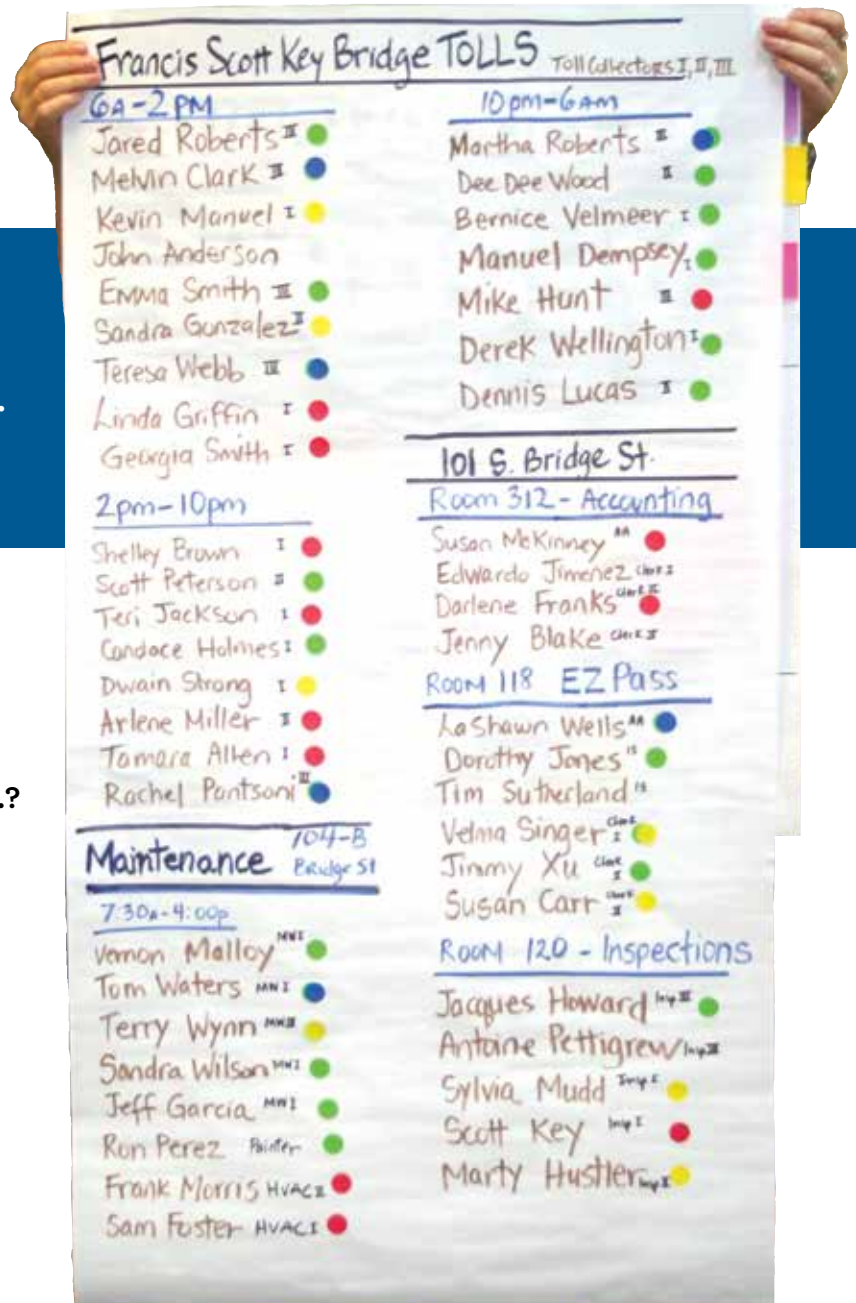 Francis Scott Key Bridge TOLLS Toll Collectors I, II, III
6A-2PM
Jared Roberts II
Melvin Clark II
Kevin Manuel I
John Anderson
Emma Smith III
Sandra Gunzalez II
Teresa Webb III
Linda Griffin I
Georgia Smith I
2pm-10pm
Shelley Brown I
Scott Peterson II
Teri Jackson I
Candace Holmes I
Dwain Strong I
Arlene Miller II
Tamara Allen I
Rachel Pantsoni III
Maintenance 104-B Bridge St
7:30a-4:00p
Vernon Malloy MWI
Tom Waters MWI
Terry Wynn MWII
Sandra Wilson MWI
Jeff Garcia MWI
Ron Perez Painter
Frank Morris HVAC II
Sam Foster HVAC I
10pm-6am
Martha Roberts II
Dee Dee Wood II
Bernice Velmeer I
Manuel Dempsey I
Mike Hunt III
Derek Wellington I
Dennis Lucas I
101 S. Bridge St.
Room 312 - Accounting
Susan McKinney AA
Edwardo Jimenez Clerk I
Darlene Franks Clerk II
Jenny Blake Clerk II
ROOM 118 EZ Pass
LaShawn Wells AA
Dorothy Jones IS
Tim Sutherland IS
Velma Singer Clerk I
Jimmy Xu Clerk II
Susan Carr Clerk II
ROOM 120 - Inspections
Jacques Howard Insp III
Antoine Pettigrew Insp II
Sylvia Mudd Insp I
Scott Key Insp I
Marty Hustler Insp I
.
.?